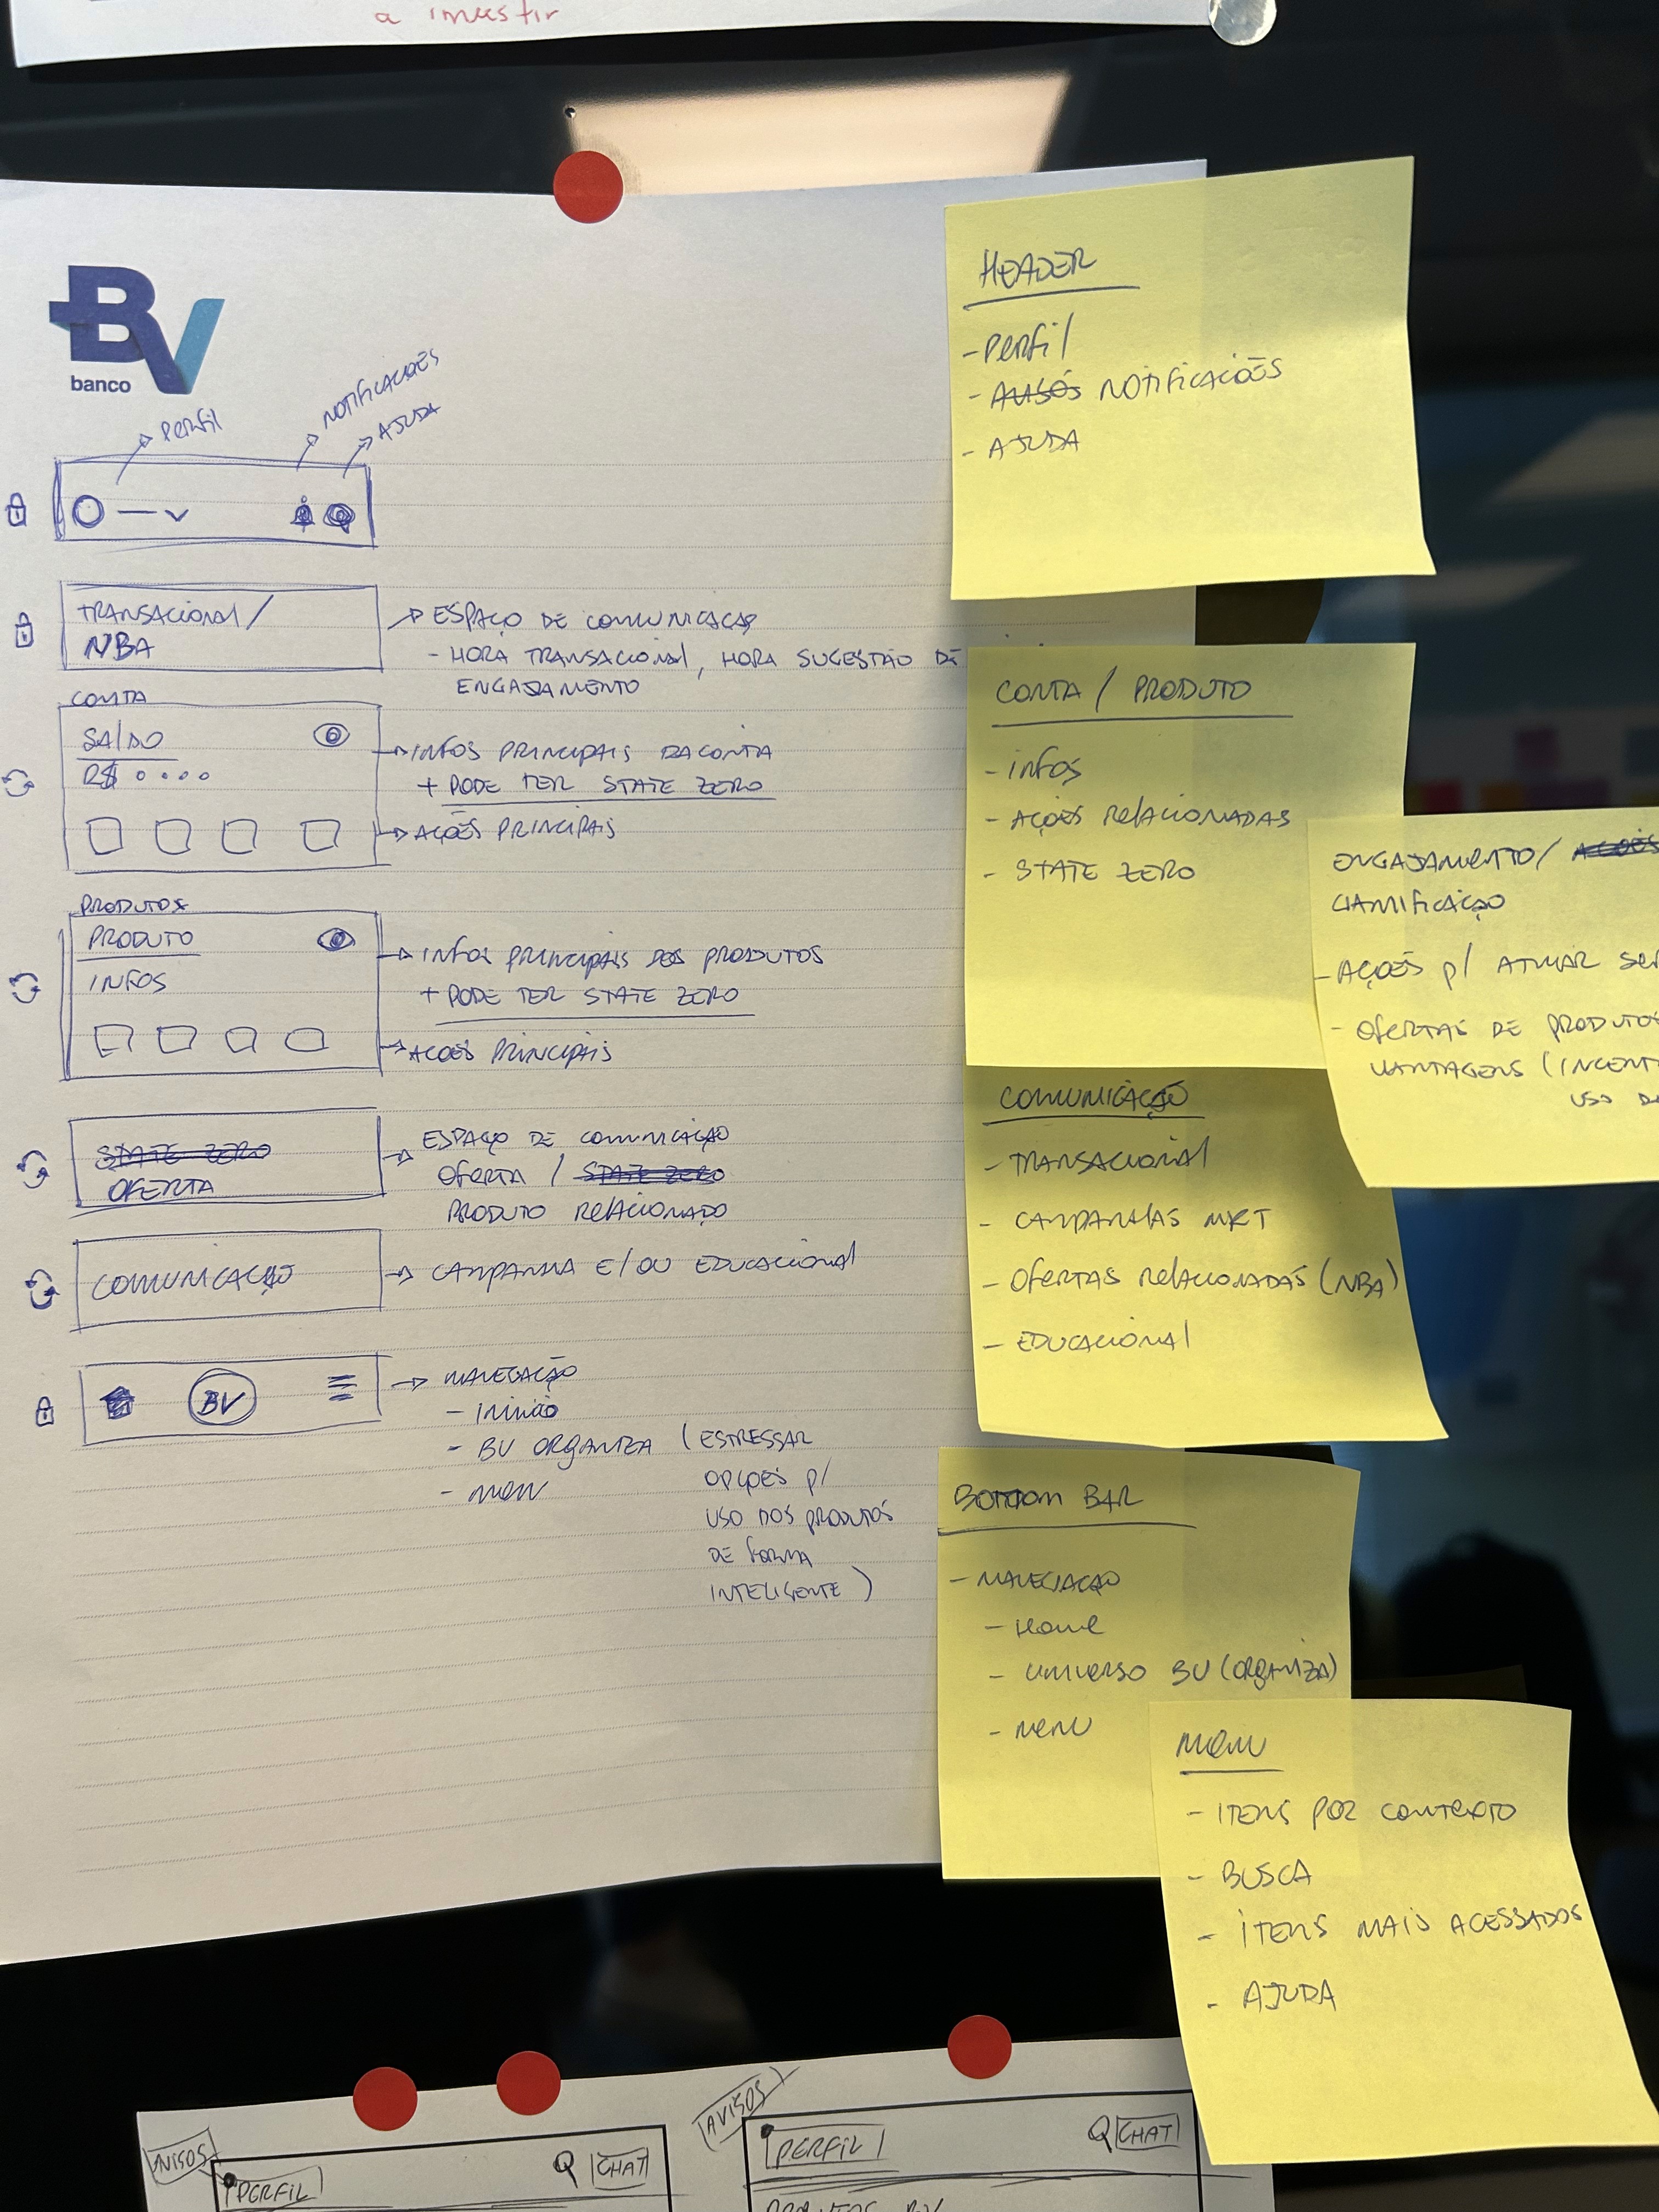 a investir
BV
banco
PERFIL
NOTIFICAÇÕES
AJUDA
TRANSACIONAL/
NBA
ESPAÇO DE COMUNICAÇÃO
- HORA TRANSACIONAL, HORA SUGESTÃO DE
ENGAJAMENTO
CONTA
SALDO
R$
INFOS PRINCIPAIS DA CONTA
+ PODE TER STATE ZERO
AÇÕES PRINCIPAIS
PRODUTOS
PRODUTO
INFOS
INFOS PRINCIPAIS DOS PRODUTOS
+ PODE TER STATE ZERO
AÇOES PRINCIPAIS
STATE ZERO
OFERTA
ESPAÇO DE COMUNICAÇÃO
OFERTA / STATE ZERO
PRODUTO RELACIONADO
COMUNICAÇÃO
CAMPANHA E/OU EDUCACIONAL
BV
NAVEGAÇÃO
- INICIO
- BV ORGANIZA (ESTRESSAR
OPÇOES P/
USO DOS PRODUTOS
DE FORMA
INTELIGENTE)
- MENU
HEADER
- PERFIL
- AVISOS NOTIFICAÇÕES
- AJUDA
CONTA / PRODUTO
- INFOS
- AÇÕES RELACIONADAS
- STATE ZERO
ENGAJAMENTO/ AÇÕES
GAMIFICAÇÃO
- AÇÕES P/ ATIVAR
- OFERTAS DE PRODUTOS
VANTAGENS (INCENT
USO
COMUNICAÇÃO
- TRANSACIONAL
- CAMPANHAS MKT
- OFERTAS RELACIONADAS (NBA)
- EDUCACIONAL
BOTTOM BAR
- NAVEGAÇÃO
- HOME
- UNIVERSO BV (ORGANIZA)
- MENU
MENU
- ITENS POR CONTEXTO
- BUSCA
- ITENS MAIS ACESSADOS
- AJUDA
AVISOS
PERFIL
CHAT
AVISOS
PERFIL
CHAT